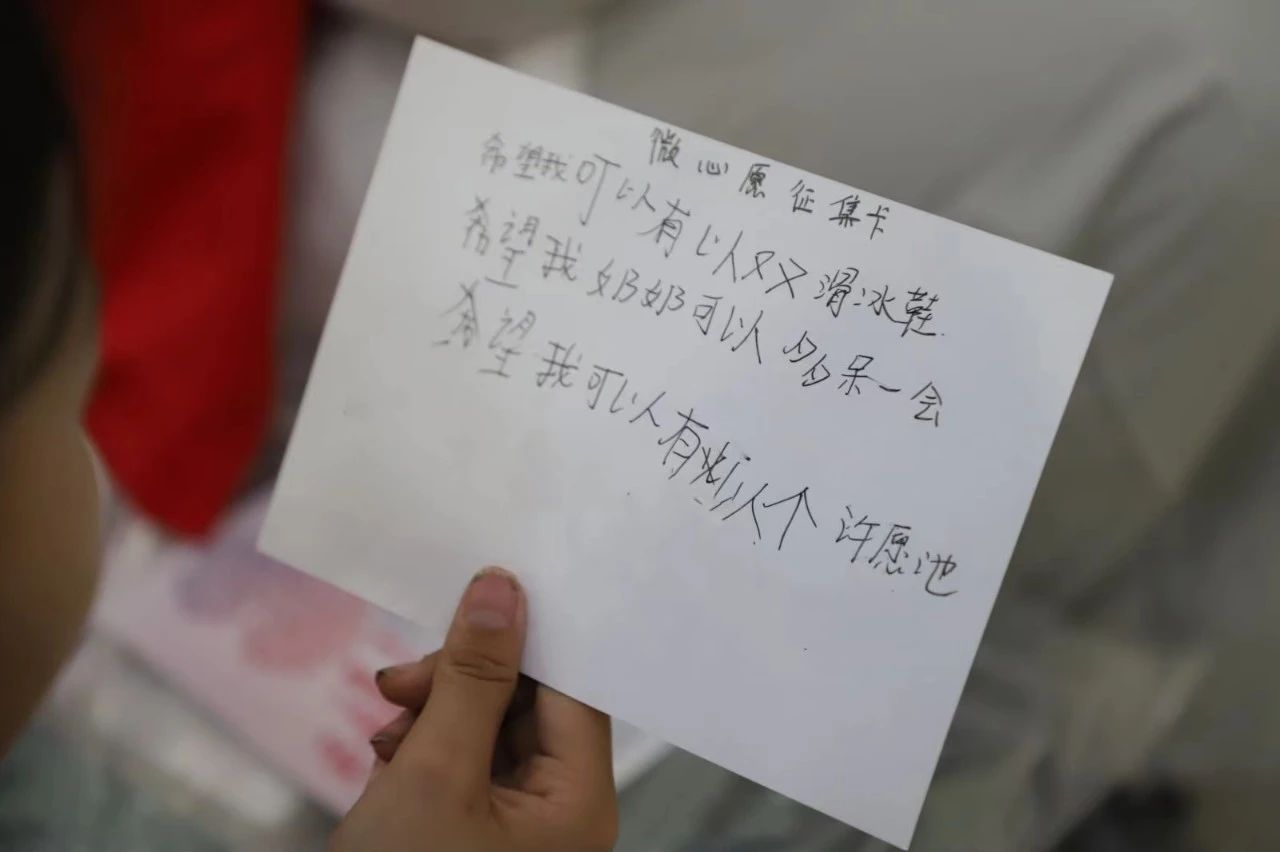 微心愿征集卡
希望我可以有以双滑冰鞋
希望我奶奶可以多呆一会
希望我可以有以个许愿池